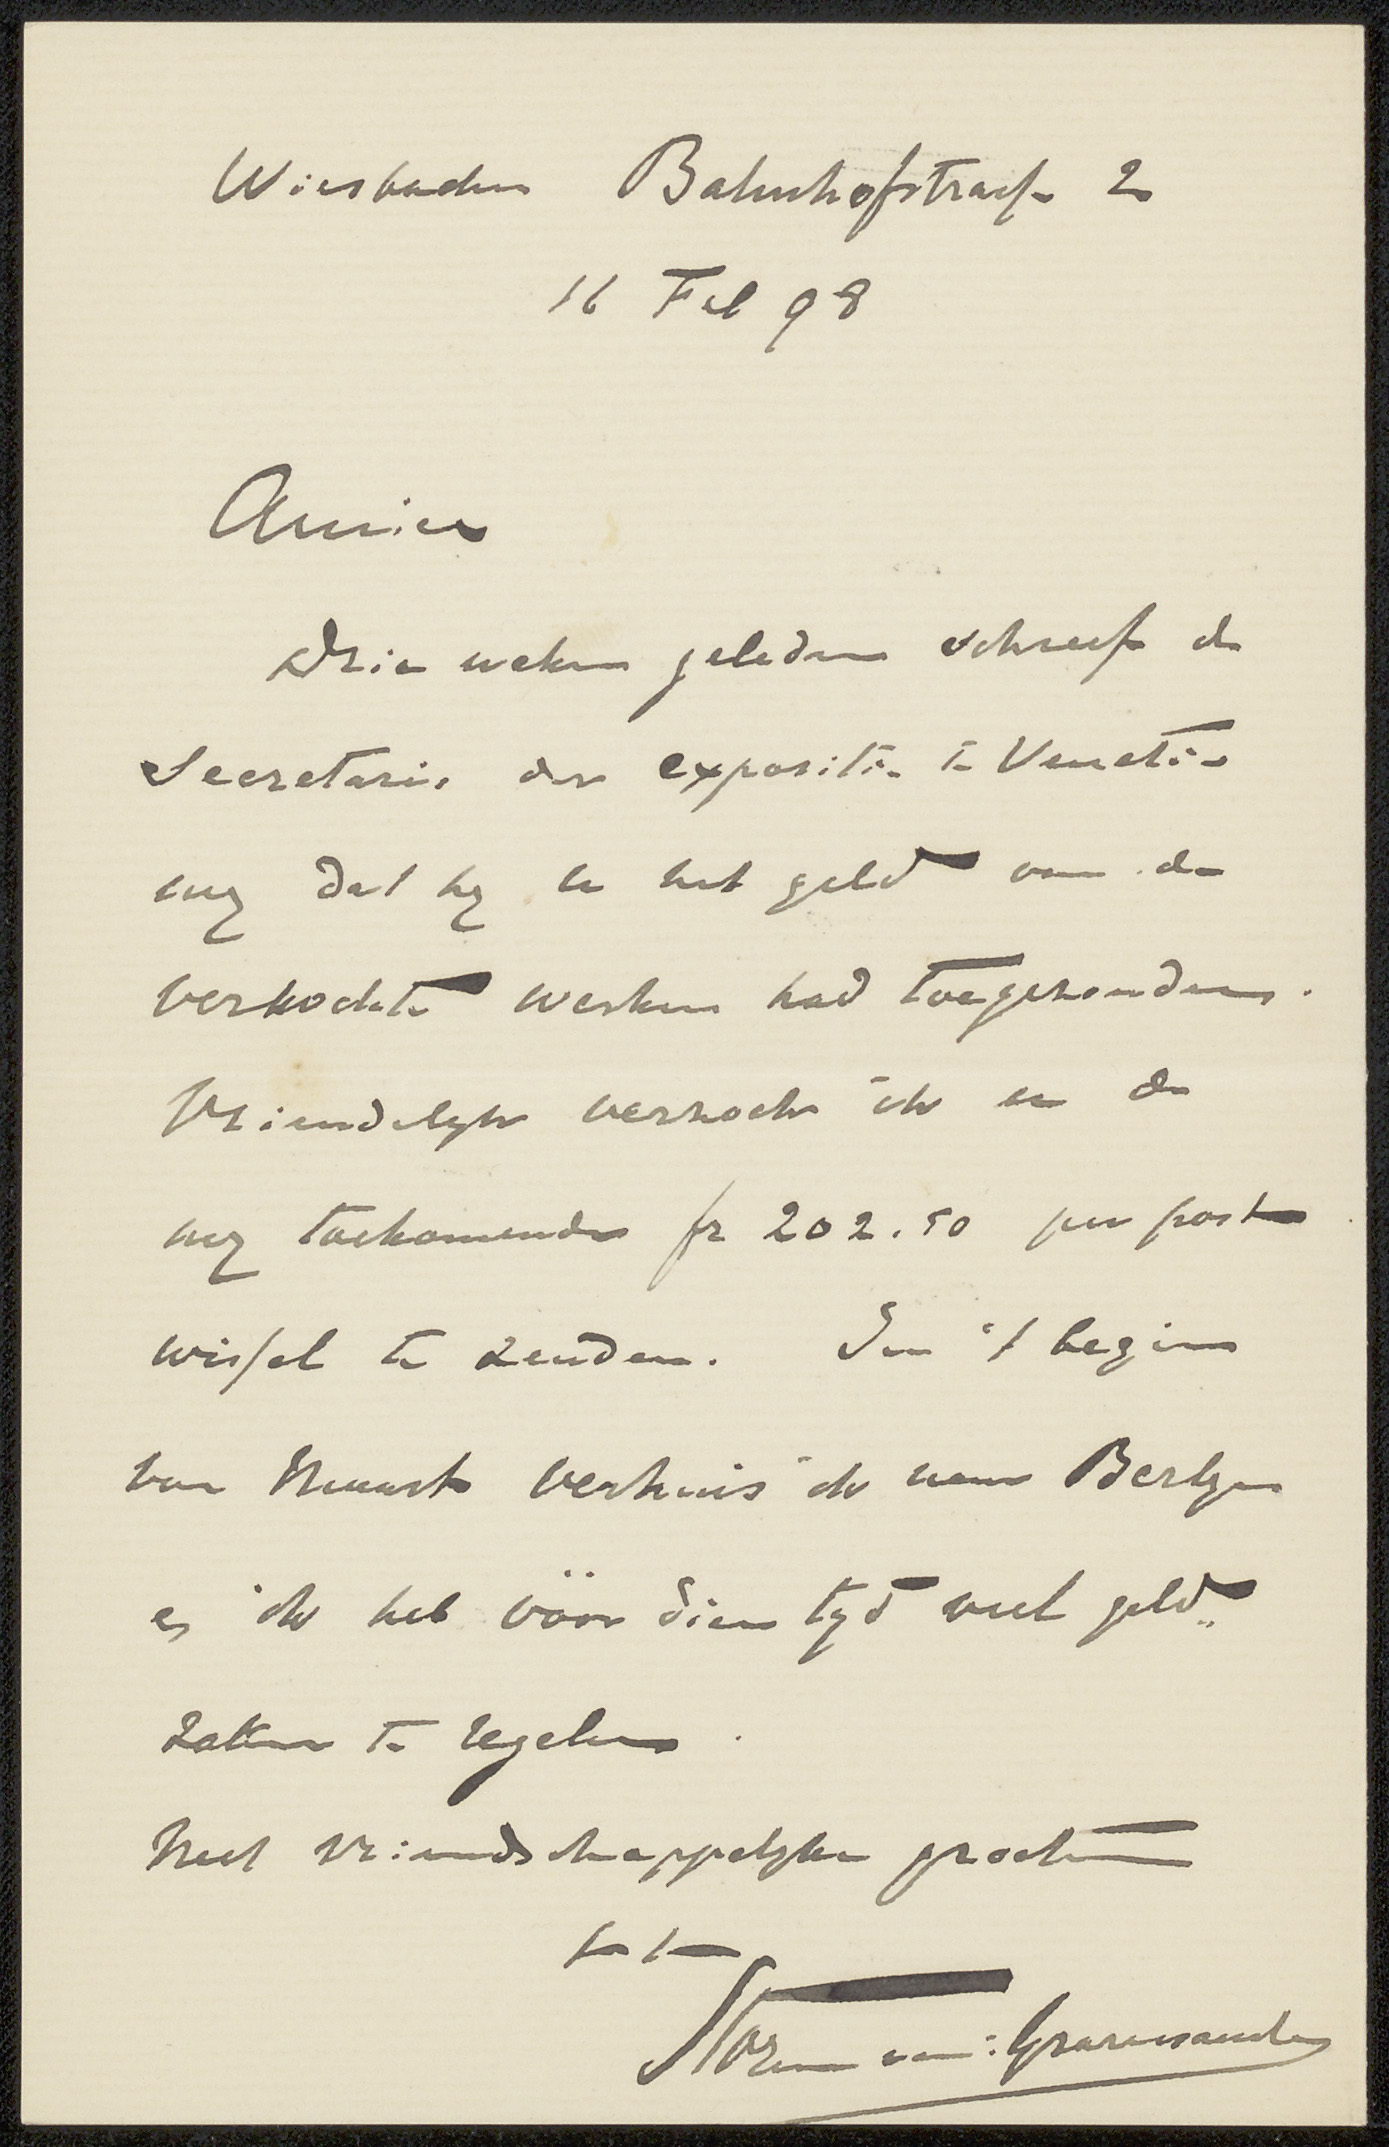 Wiesbaden Bahnhofstrasse 2
16 Feb 98
Amice
Drie weken geleden schreef de
Secretaris der expositie te Venetie
my dat hy u het geld van de
verkochte werken had toegezonden.
Vriendelyk verzoek ik u de
my toekomende fr 202.50 per post
wissel te zenden. In 't begin
van Maart verhuis ik naar Berlyn
en ik heb vóór dien tyd veel geld
zaken te regelen.
Met vriendschappelyke groeten
t. t.
Storm van 's Gravesande